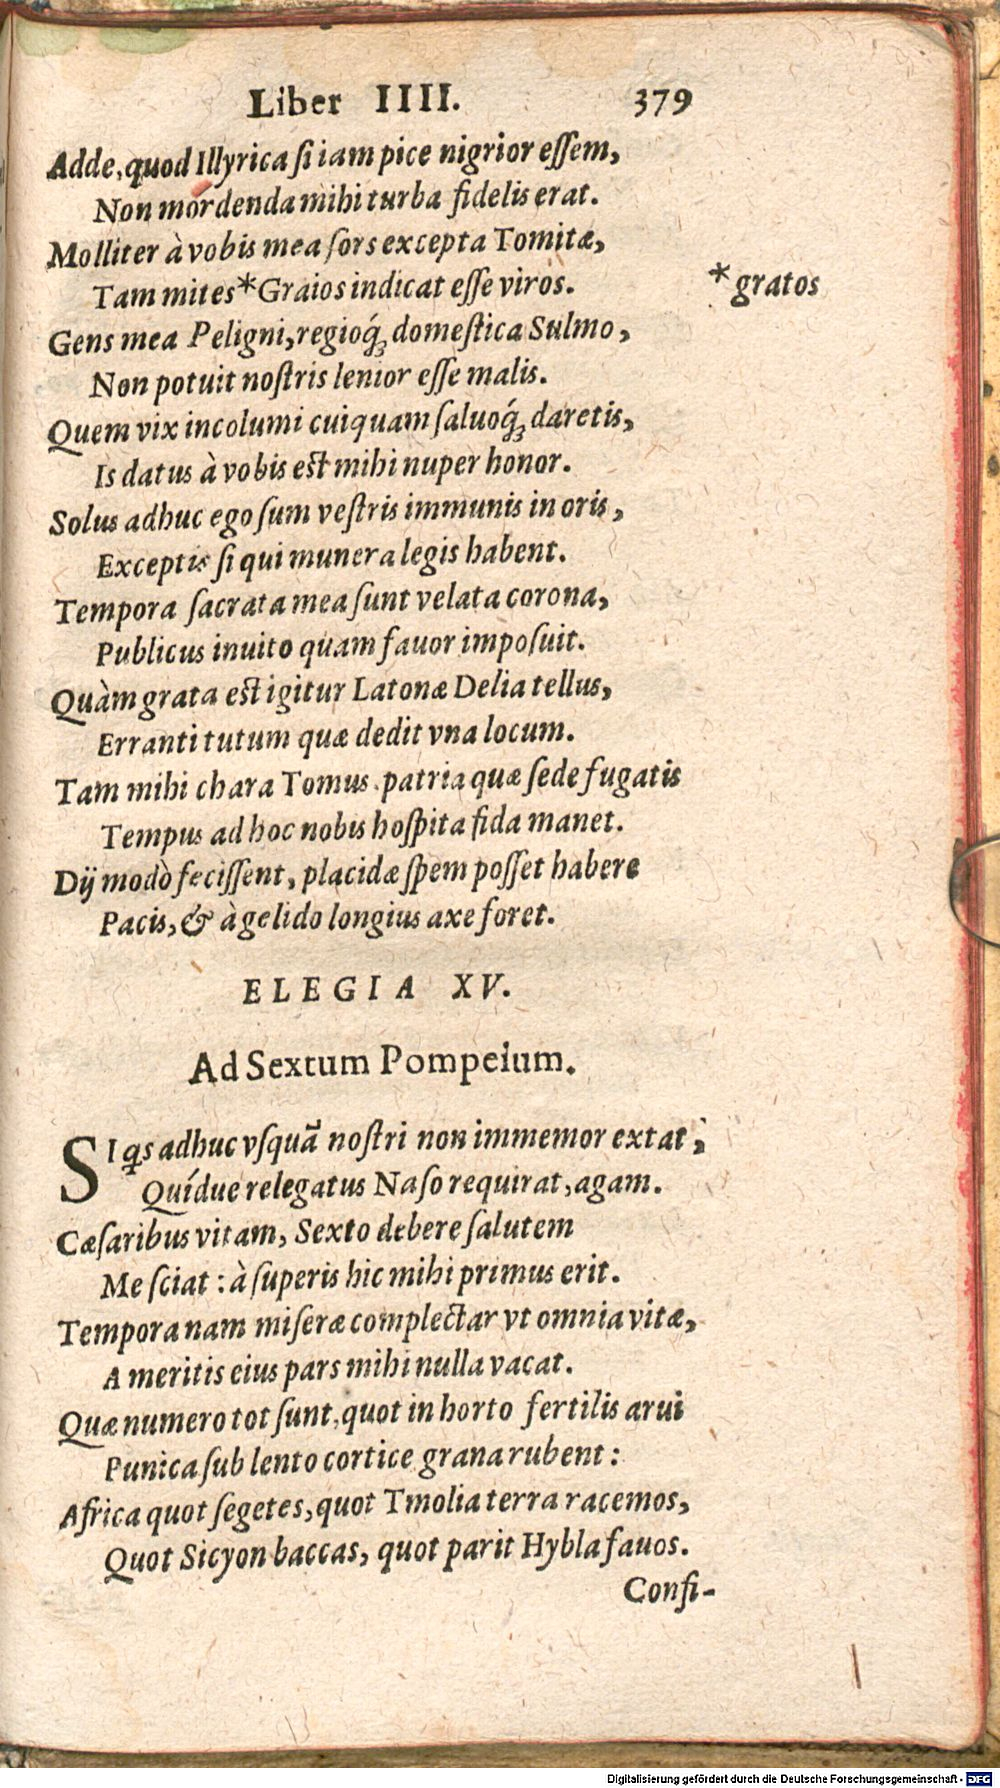 Liber IIII. 379
Adde, quod Illyrica ſi iam pice nigrior eſſem,
Non mordenda mihi turba fidelis erat.
Molliter à vobis mea ſors excepta Tomitæ,
Tam mites *Graios indicat eſſe viros. *gratos
Gens mea Peligni, regioq́; domeſtica Sulmo,
Non potuit noſtris lenior eſſe malis.
Quem vix incolumi cuiquam ſaluoq́; daretis,
Is datus à vobis est mihi nuper honor.
Solus adhuc ego ſum veſtris immunis in oris,
Exceptis ſi qui munera legis habent.
Tempora ſacrata mea ſunt velata corona,
Publicus inuito quam fauor impoſuit.
Quàm grata est igitur Latonæ Delia tellus,
Erranti tutum quæ dedit vna locum.
Tam mihi chara Tomus patria quæ ſede fugatis
Tempus ad hoc nobis hoſpita fida manet.
Dij modò feciſſent, placidæ ſpem poſſet habere
Pacis, & à gelido longius axe foret.
ELEGIA XV.
Ad Sextum Pompeium.
SI qs adhuc vſquā noſtri non immemor extat,
Quídue relegatus Naſo requirat, agam.
Cæſaribus vitam, Sexto debere ſalutem
Me ſciat: à ſuperis hic mihi primus erit.
Tempora nam miſeræ complectar vt omnia vitæ,
A meritis eius pars mihi nulla vacat.
Quæ numero tot ſunt, quot in horto fertilis arui
Punica ſub lento cortice grana rubent:
Africa quot ſegetes, quot Tmolia terra racemos,
Quot Sicyon baccas, quot parit Hybla fauos.
Confi-
Digitalisierung gefördert durch die Deutsche Forschungsgemeinschaft - DFG